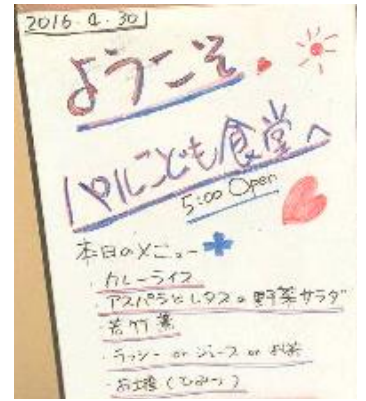 2016.4.30
ようこそ
パルこども食堂へ
5:00 Open
本日のメニュー
・カレーライス
・アスパラとレタスの野菜サラダ
・若竹煮
・ラッシー or ジュース or お茶
・お土産(ひみつ)